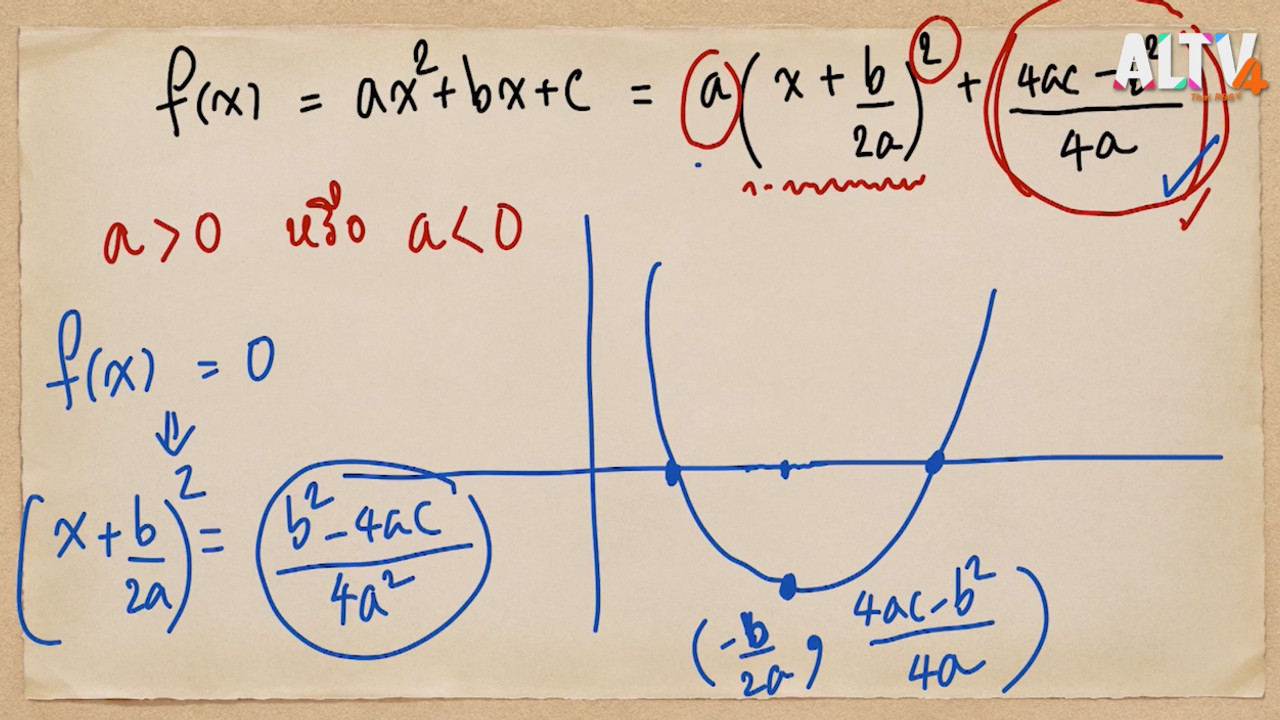 ALTV 4
Thai PBS
f(x) = ax² + bx + c = a(x + b/2a)² + (4ac - b²)/4a
a > 0 หรือ a < 0
f(x) = 0
⇓
(x + b/2a)² = (b² - 4ac)/4a²
(-b/2a, (4ac - b²)/4a)